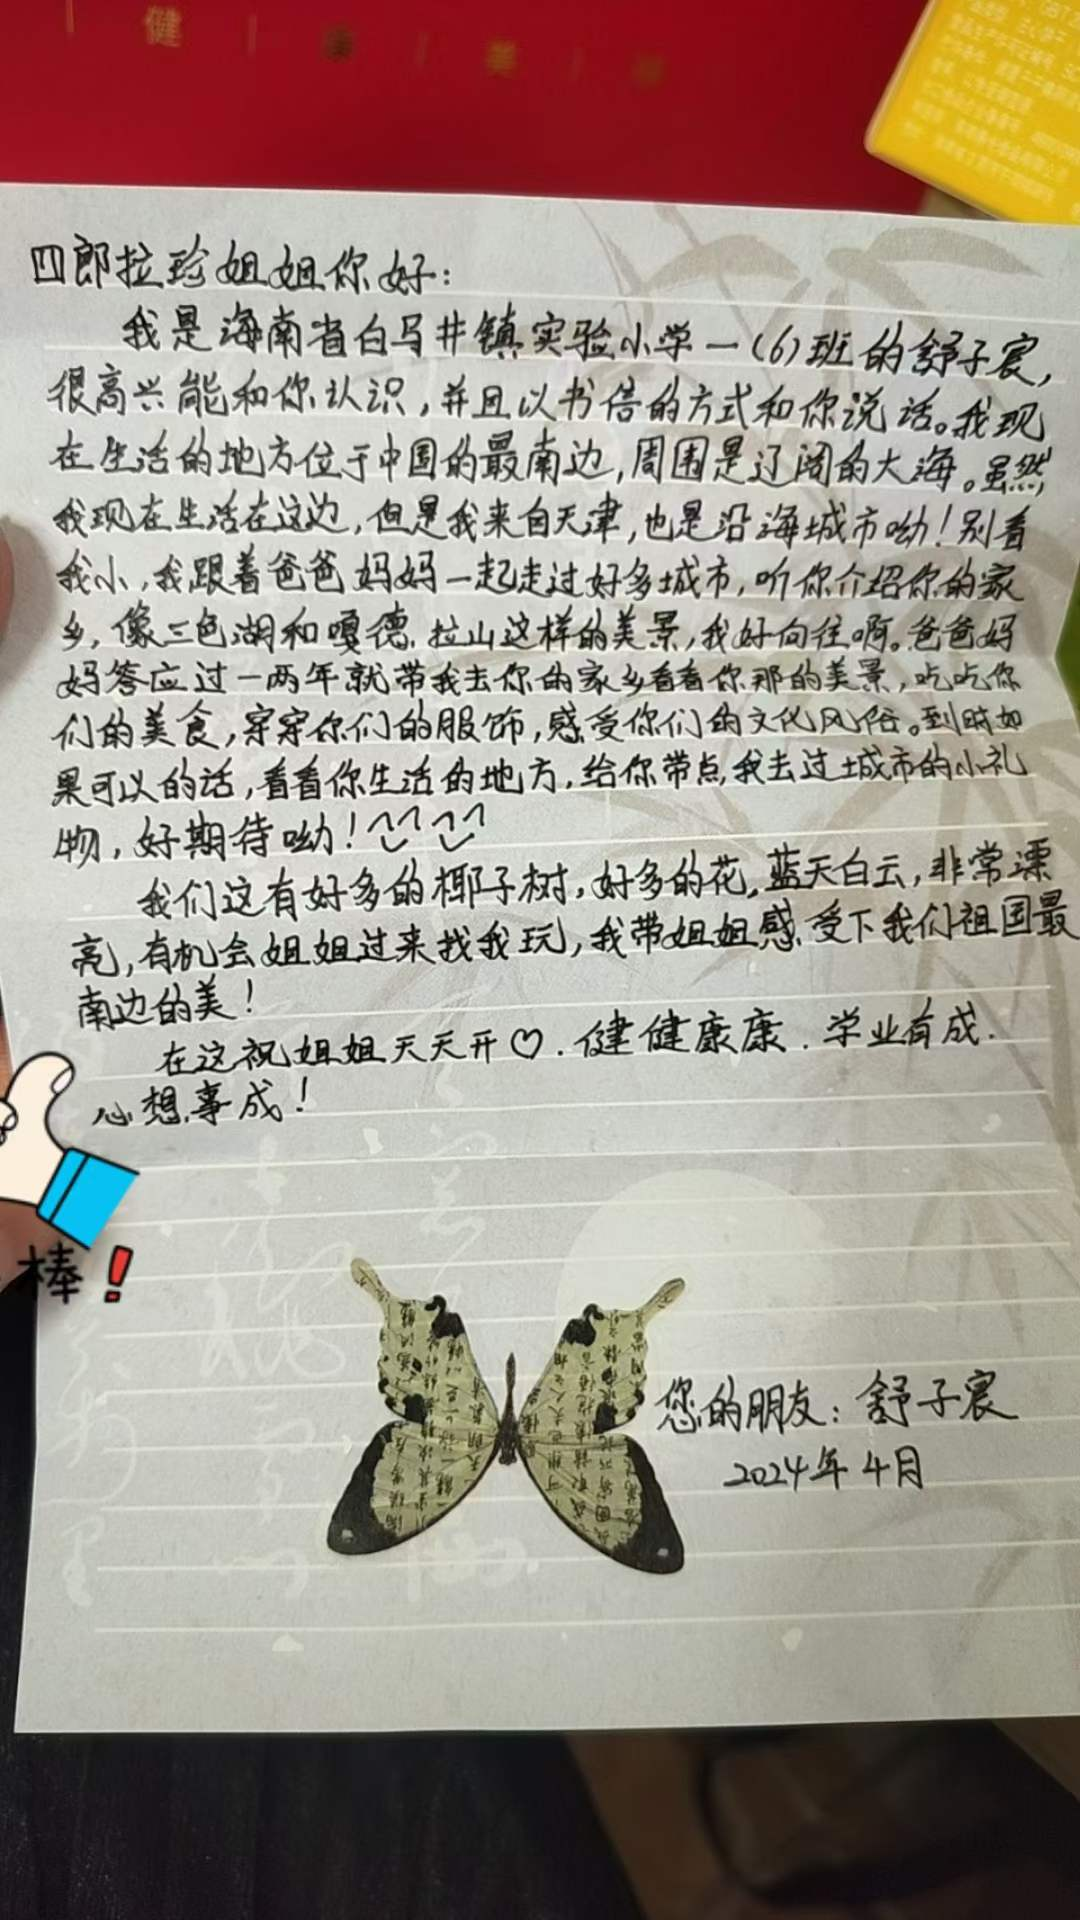 健
康
美
四郎拉珍姐姐你好：
我是海南省白马井镇实验小学一(6)班的舒子宸，
很高兴能和你认识，并且以书信的方式和你说话。我现
在生活的地方位于中国的最南边，周围是辽阔的大海。虽然
我现在生活在这边，但是我来自天津，也是沿海城市呦！别看
我小，我跟着爸爸妈妈一起走过好多城市，听你介绍你的家
乡，像三色湖和嘎德.拉山这样的美景，我好向往啊。爸爸妈
妈答应过一两年就带我去你的家乡看看你那的美景，吃吃你
们的美食，穿穿你们的服饰，感受你们的文化风俗。到时如
果可以的话，看看你生活的地方，给你带点我去过城市的小礼
物，好期待呦！
我们这有好多的椰子树，好多的花，蓝天白云，非常漂
亮，有机会姐姐过来找我玩，我带姐姐感受下我们祖国最
南边的美！
在这祝姐姐天天开♡.健健康康.学业有成.
心想事成！
棒！
您的朋友：舒子宸
2024年4月